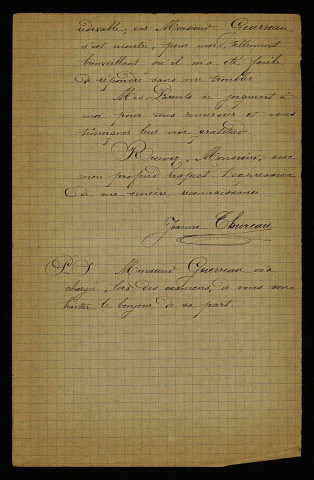 car Monsieur Guerreau
s'est montré, pour moi, tellement
bienveillant qu'il m'a été facile
de répondre sans me troubler.
Mes Parents se joignent à
moi pour vous remercier et vous
témoigner leur vive gratitude.
Recevez, Monsieur, avec
mon profond respect l'expression
de ma sincère reconnaissance
Jeanne Thureau
P. S. Monsieur Guerreau m'a
chargée, lors des examens, de vous sou-
haiter le bonjour de sa part.